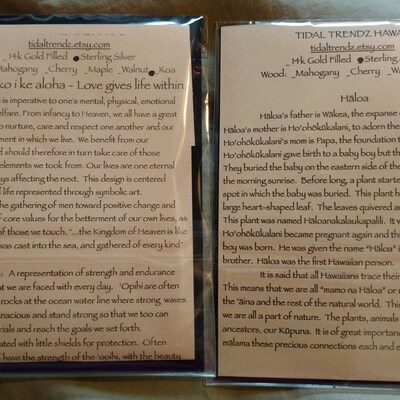 tidaltrendz.etsy.com
14k Gold Filled Sterling Silver
Mahogany Cherry Maple Walnut Koa
ko i ke aloha - Love gives life within
is imperative to one's mental, physical, emotional
elfare. From infancy to Heaven, we all have a great
to nurture, care and respect one another and our
ment in which we live. We benefit from our
d should therefore in turn take care of those
elements we took from. Our lives are one eternal
ys affecting the next. This design is centered
d life represented through symbolic art.
the gathering of men toward positive change and
f core values for the betterment of our own lives, as
of those we touch. "...the Kingdom of Heaven is like
was cast into the sea, and gathered of every kind"
: A representation of strength and endurance
at we are faced with every day. 'Opihi are often
rocks at the ocean water line where strong waves
nacious and stand strong so that we too can
rials and reach the goals we set forth.
eated with little shields for protection. Often
have the strength of the 'opihi, with the beauty
TIDAL TRENDZ HAWAI
tidaltrendz.etsy.com
14k Gold Filled Sterling
Wood: Mahogany Cherry Wa
Hāloa
Hāloa's father is Wākea, the expanse o
Hāloa's mother is Ho'ohōkūkalani, to adorn the
Ho'ohōkūkalani's mom is Papa, the foundation
Ho'ohōkūkalani gave birth to a baby boy but th
They buried the baby on the eastern side of th
the morning sunrise. Before long, a plant starte
spot in which the baby was buried. This plant h
large heart-shaped leaf. The leaves quivered an
This plant was named Hāloanakalaukapalili. It w
Ho'ohōkūkalani became pregnant again and thi
boy was born. He was given the name "Hāloa" i
brother. Hāloa was the first Hawaiian person.
It is said that all Hawaiians trace their
This means that we are all "mamo na Hāloa" or
the 'āina and the rest of the natural world. This
we are all a part of nature. The plants, animals
ancestors, our Kūpuna. It is of great importanc
mālama these precious connections each and e